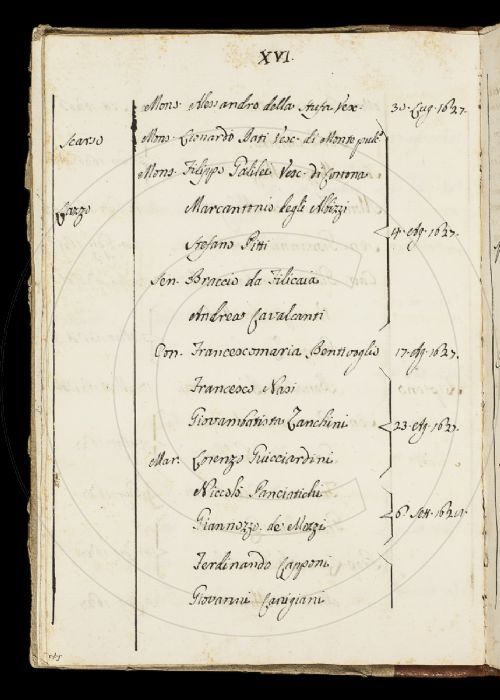 XVI.
Mons. Alessandro della Stufa Vesc. 30. Lug. 1627.
Scarso Mons. Lionardo Dati Vesc. di Montepulc.
Mons. Filippo Galilei Vesc. di Cortona
Gozzo Marcantonio degli Albizzi
14. Ag. 1627.
Stefano Pitti
Sen. Braccio da Filicaia
Andrea Cavalcanti
Con. Francescomaria Bentivoglio 17. Ag. 1627.
Francesco Nasi
Giovambatista Zanchini 23. Ag. 1627.
Mar. Lorenzo Guicciardini
Niccolò Panciatichi
6. Sett. 1627.
Giannozzo de Mozzi
Ferdinando Capponi
Giovanni Canigiani